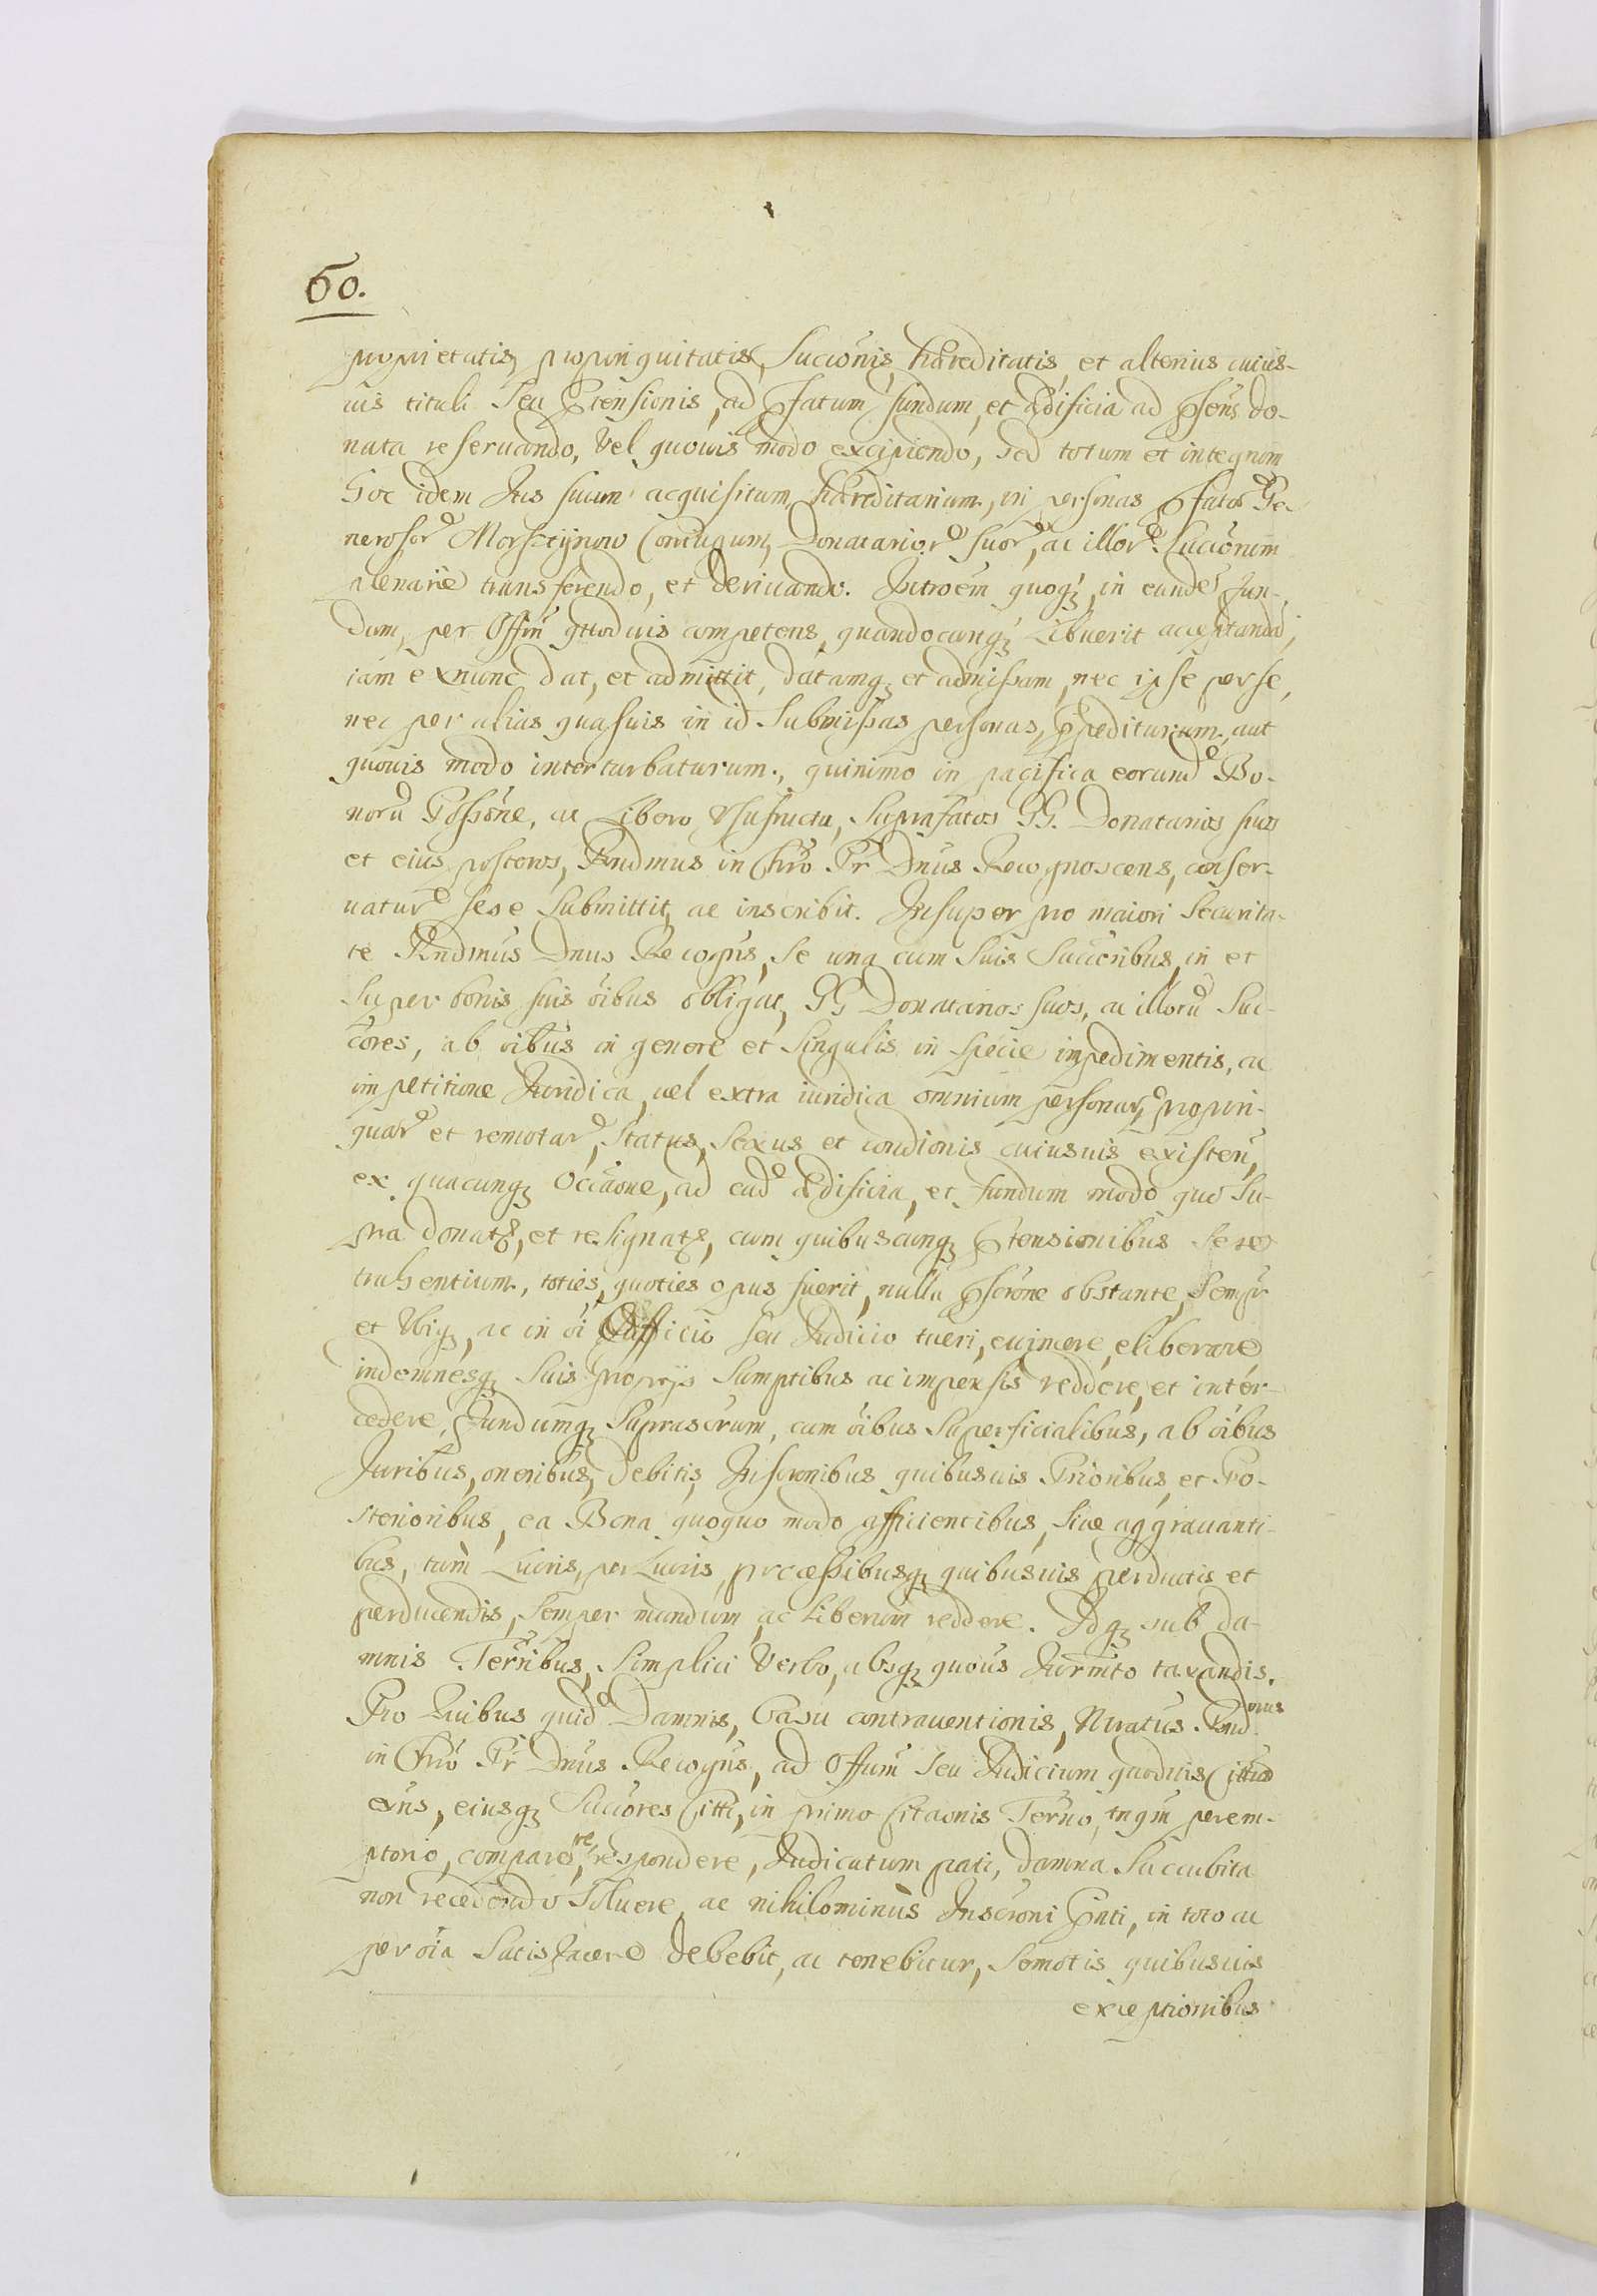 60.
proprietatis, propinquitatis, Succõnis, hæreditatis, et alterius cuius-
uis tituli Seu Prtensionis, ad Prfatum fundum, et ædificia ad Prsens do-
nata reseruando, Vel quouis modo excipiendo, sed totum et integrum
hoc idem Jus suum acquisitum, hæreditarium, in personas Prfator Ge-
nerosor Morsztynow Coniugum, Donatarior suor, ac illor Succorum
plenarie transferendo, et deriuando. Introem quoq, in eunde fun-
dum, per Offm quoduis competens, quandocunq Libuerit acceptandã,
iam exnunc dat, et admittit, datamq et admissam, nec ipse per se,
nec per alias quasuis in id Submissas personas, Prpediturum, aut
quouis modo interturbaturum, quinimo in pacifica eorund Bo-
norũ Possõne, ac Libero Usufructu, Suprafatos GG. Donatarios suos
et eius posteros, Rndmus in Chro Pr Dnus Recognoscens, conser-
uatur sese Submittit, ac inscribit. Insuper pro maiori Securita-
te Rndmus Dnus Recogns, se una cum Suis Succoribus, in et
Super bonis suis oibus obligat, GG Donatarios suos, ac illorũ Suc-
cores, ab oibus in genere et Singulis in specie impedimentis, ac
impetitione Juridica, uel extra iuridica omnium personar, propin-
quar et remotar, Status, Sexus et condionis cuiusuis existen,
ex quacunq Occãone, ad ead ædificia, et fundum modo quo Su-
pra donat, et resignat, cum quibuscunq Prtensionibus sese
trahentium, toties, quoties opus fuerit, nulla Prscrone obstante, Sempr
et Ubiq, ac in oi Officio seu Judicio tueri, euincere, eliberare
indemnesq Suis proprijs Sumptibus ac impensis reddere, et inter-
cedere, fundumq Suprascrum, cum oibus Superficialibus, ab oibus
Juribus, oneribus, debitis, Inscronibus quibusuis Prioribus, et Po-
sterioribus, ea Bona quoquo modo afficientibus, siue aggrauanti-
bus, tum Lucris, perLucris, processibusq quibusuis perductis et
perducendis, semper mundum, ac Liberum reddere. Idq sub da-
mnis Terribus, Simplici Verbo, absq quouis Jurmto taxandis.
Pro Quibus quid Damnis, Casu contrauentionis, Nratus Rndmus
in Chro Pr Dnus Recogns, ad Offum seu Judicium quoduis Cittus
exns, eiusq Succores Citti, in primo Citaonis Terno, tnqm perem-
ptorio, comparere, respondere, Judicatum pati, damna Succubita
non recedendo Soluere, ac nihilominùs Inscroni Prnti, in toto ac
per oia Satisfacere debebit, ac tenebitur, Semotis quibusuis
exceptionibus